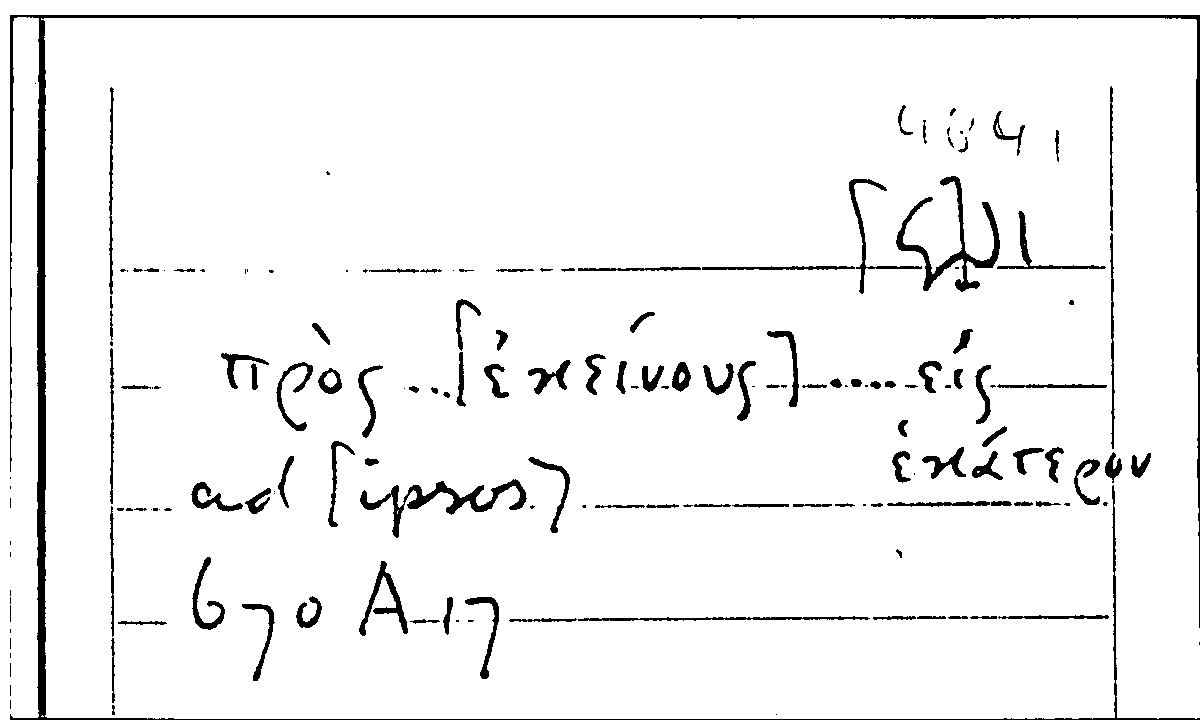 πρὸς ...[ἐκείνους]..... εἰς
ἑκάτερον
ad [ipsos]
670 A 17